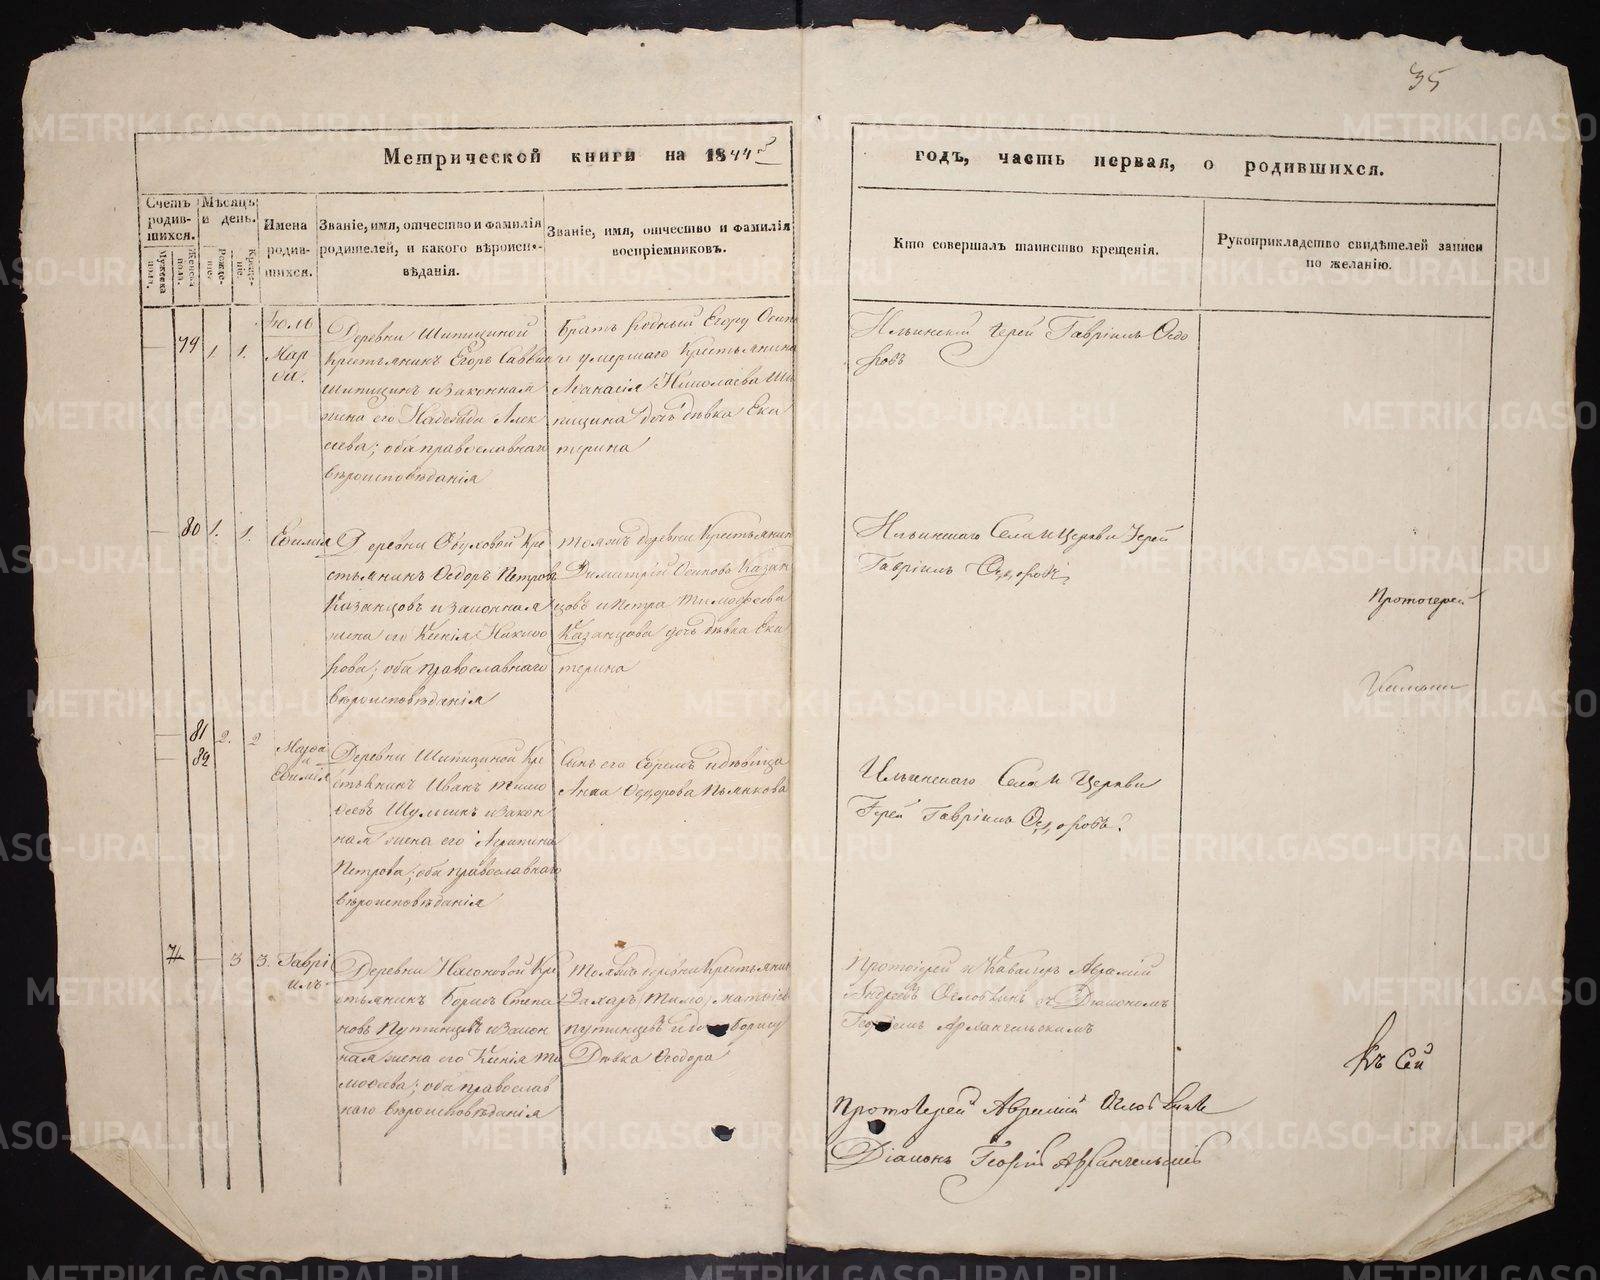 35
Метрической книги на 1844й
годъ, часть первая, о родившихся.
Счетъ родив-шихся.
Мужеска пола.
Женска пола.
Мѣсяцъ и день.
Рожде-ніе.
Креще-ніе.
Имена родив-шихся.
Званіе, имя, отчество и фамилія
родителей, и какого вѣроиспо-
вѣданія.
Званіе, имя, отчество и фамилія
воспріемниковъ.
Кто совершалъ таинство крещенія.
Рукоприкладство свидѣтелей записи
по желанію.
Іюль
79 1. 1.
Мар
ѳа.
Деревни Шипициной
Крестьянинъ Егоръ Саввинъ
Шипицинъ и законная
жена его Надежда Алек
сѣева; оба православнаго
вѣроисповѣданія
Братъ родный Егору Осипъ
и умершаго крестьянина
Аѳанасія Николаева Ши
пицина дочь дѣвка Ека
терина
Ильинскій Іерей Гавріилъ Ѳедо
ровъ
80 1. 1.
Евѳимія
Деревни Обуховой Кре
стьянинъ Ѳедоръ Петровъ
Казанцовъ и законная
жена его Ксенія Никифо
рова; оба православнаго
вѣроисповѣданія
тояжъ деревни Крестьянинъ
Димитрій Осиповъ Казан
цовъ и Петра Тимофеева
Казанцова дочь дѣвка Ека
терина
Ильинскаго Села и Церкви Іерей
Гавріилъ Ѳедоровъ
Протоіерей
81
82
2. 2
и
Евѳимія
Деревни Шипициной Кре
стьянинъ Иванъ Тимо
ѳеевъ Шулгинъ и закон
ная жена его Агрипина
Петрова; оба православнаго
вѣроисповѣданія
Сынъ его Ефремъ и дѣвица
Анна Ѳедорова Пьянкова
Ильинскаго Села и Церкви
Іерей Гавріилъ Ѳедоровъ.
71 3 3.
Гаври
илъ
Деревни Кре
стьянинъ Борисъ Степа
новъ Путинцевъ и закон
ная жена его Ксенія Ти
моѳеева; оба православ
наго вѣроисповѣданія
Тояжъ деревни Крестьянинъ
Захаръ
Путинцевъ и Борису
Дѣвка Ѳеодора
Протоіерей и Кавалеръ Аврамій
Андреевъ Оглоблинъ съ Діакономъ
Георгіемъ Архангельскимъ
Къ сей
Протоіерей Аврамій Оглоблинъ
Діаконъ Георгій Архангельскій
METRIKI.GASO-URAL.RU